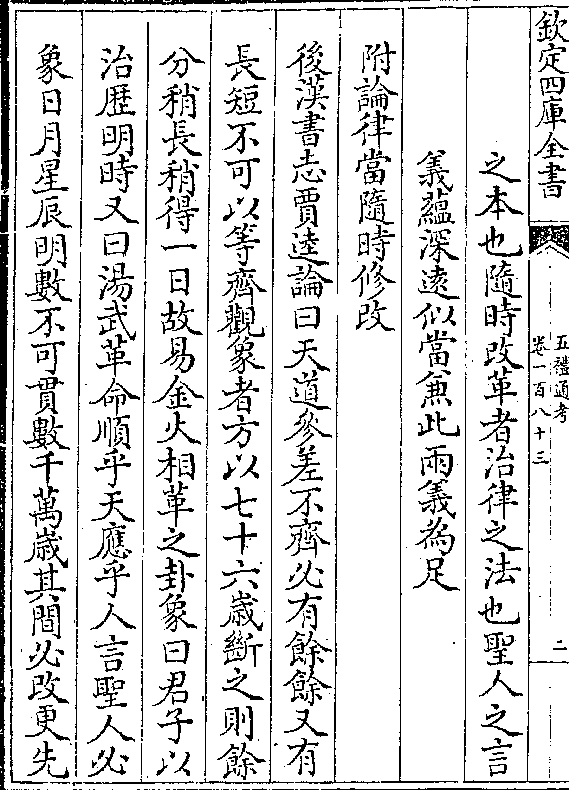 欽定四庫全書
五禮通考
卷一百八十三
二
之本也隨時改革者治律之法也聖人之言
義蘊深遠似當兼此兩義為足
附論律當隨時修改
後漢書志賈逵論曰天道參差不齊必有餘餘又有
長短不可以等齊觀象者方以七十六歲斷之則餘
分稍長稍得一日故易金火相革之卦象曰君子以
治歴明時又曰湯武革命順乎天應乎人言聖人必
象日月星辰明數不可貫數千萬歳其間必改更先